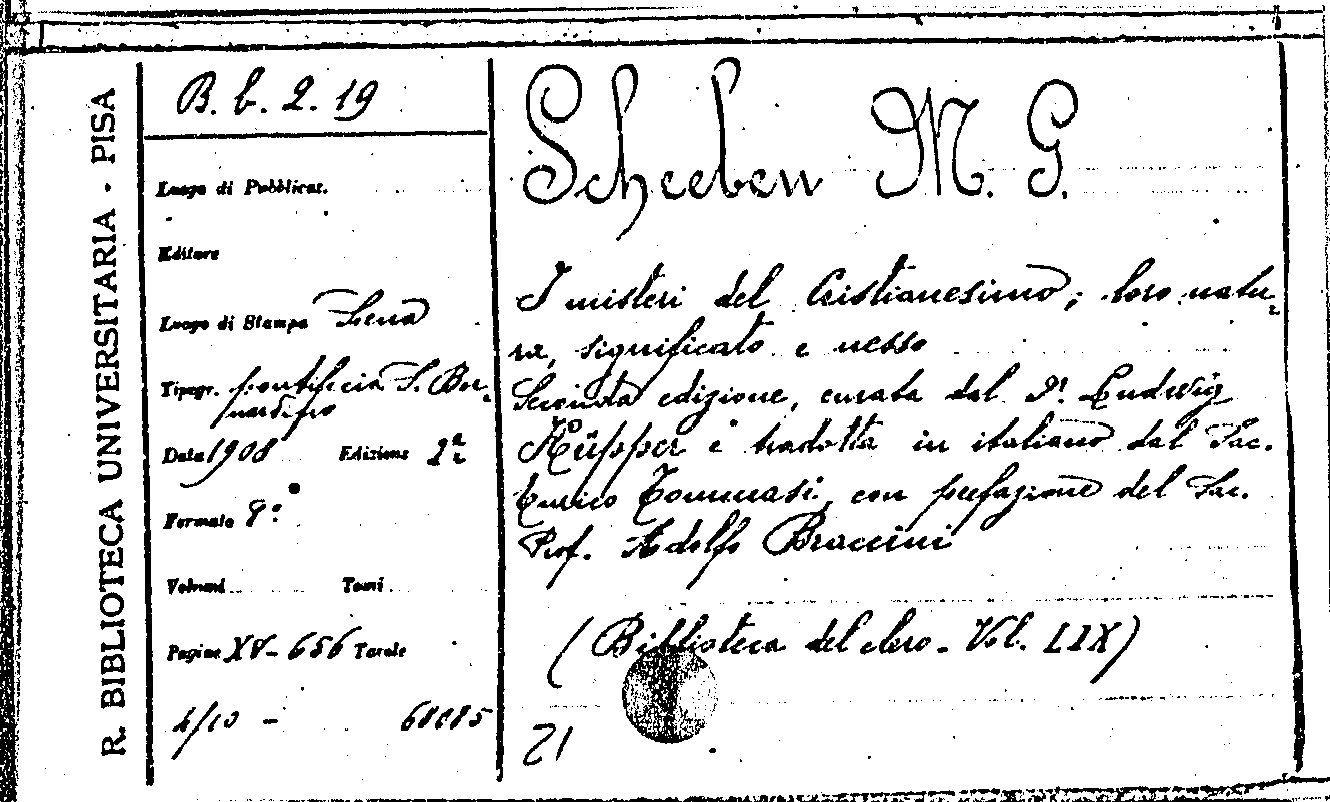 R. BIBLIOTECA UNIVERSITARIA - PISA
B. b. 2. 19
Luogo di Pubblicaz.
Editore
Luogo di Stampa Siena
Tipogr. pontificia S. Ber-
nardino
Data 1908 Edizione 2ª
Formato 8º
Volumi Tomi
Pagine XV-656 Tavole
4/10 -
Scheeben M. G.
I misteri del Cristianesimo; loro natu-
ra, significato e nesso
Seconda edizione, curata dal Dr Ludwig
Küpper e tradotta in italiano dal Sac.
Enrico Tommasi, con prefazione del Sac.
Prof. Adolfo Braccini
(Biblioteca del clero - Vol. LIX)
21